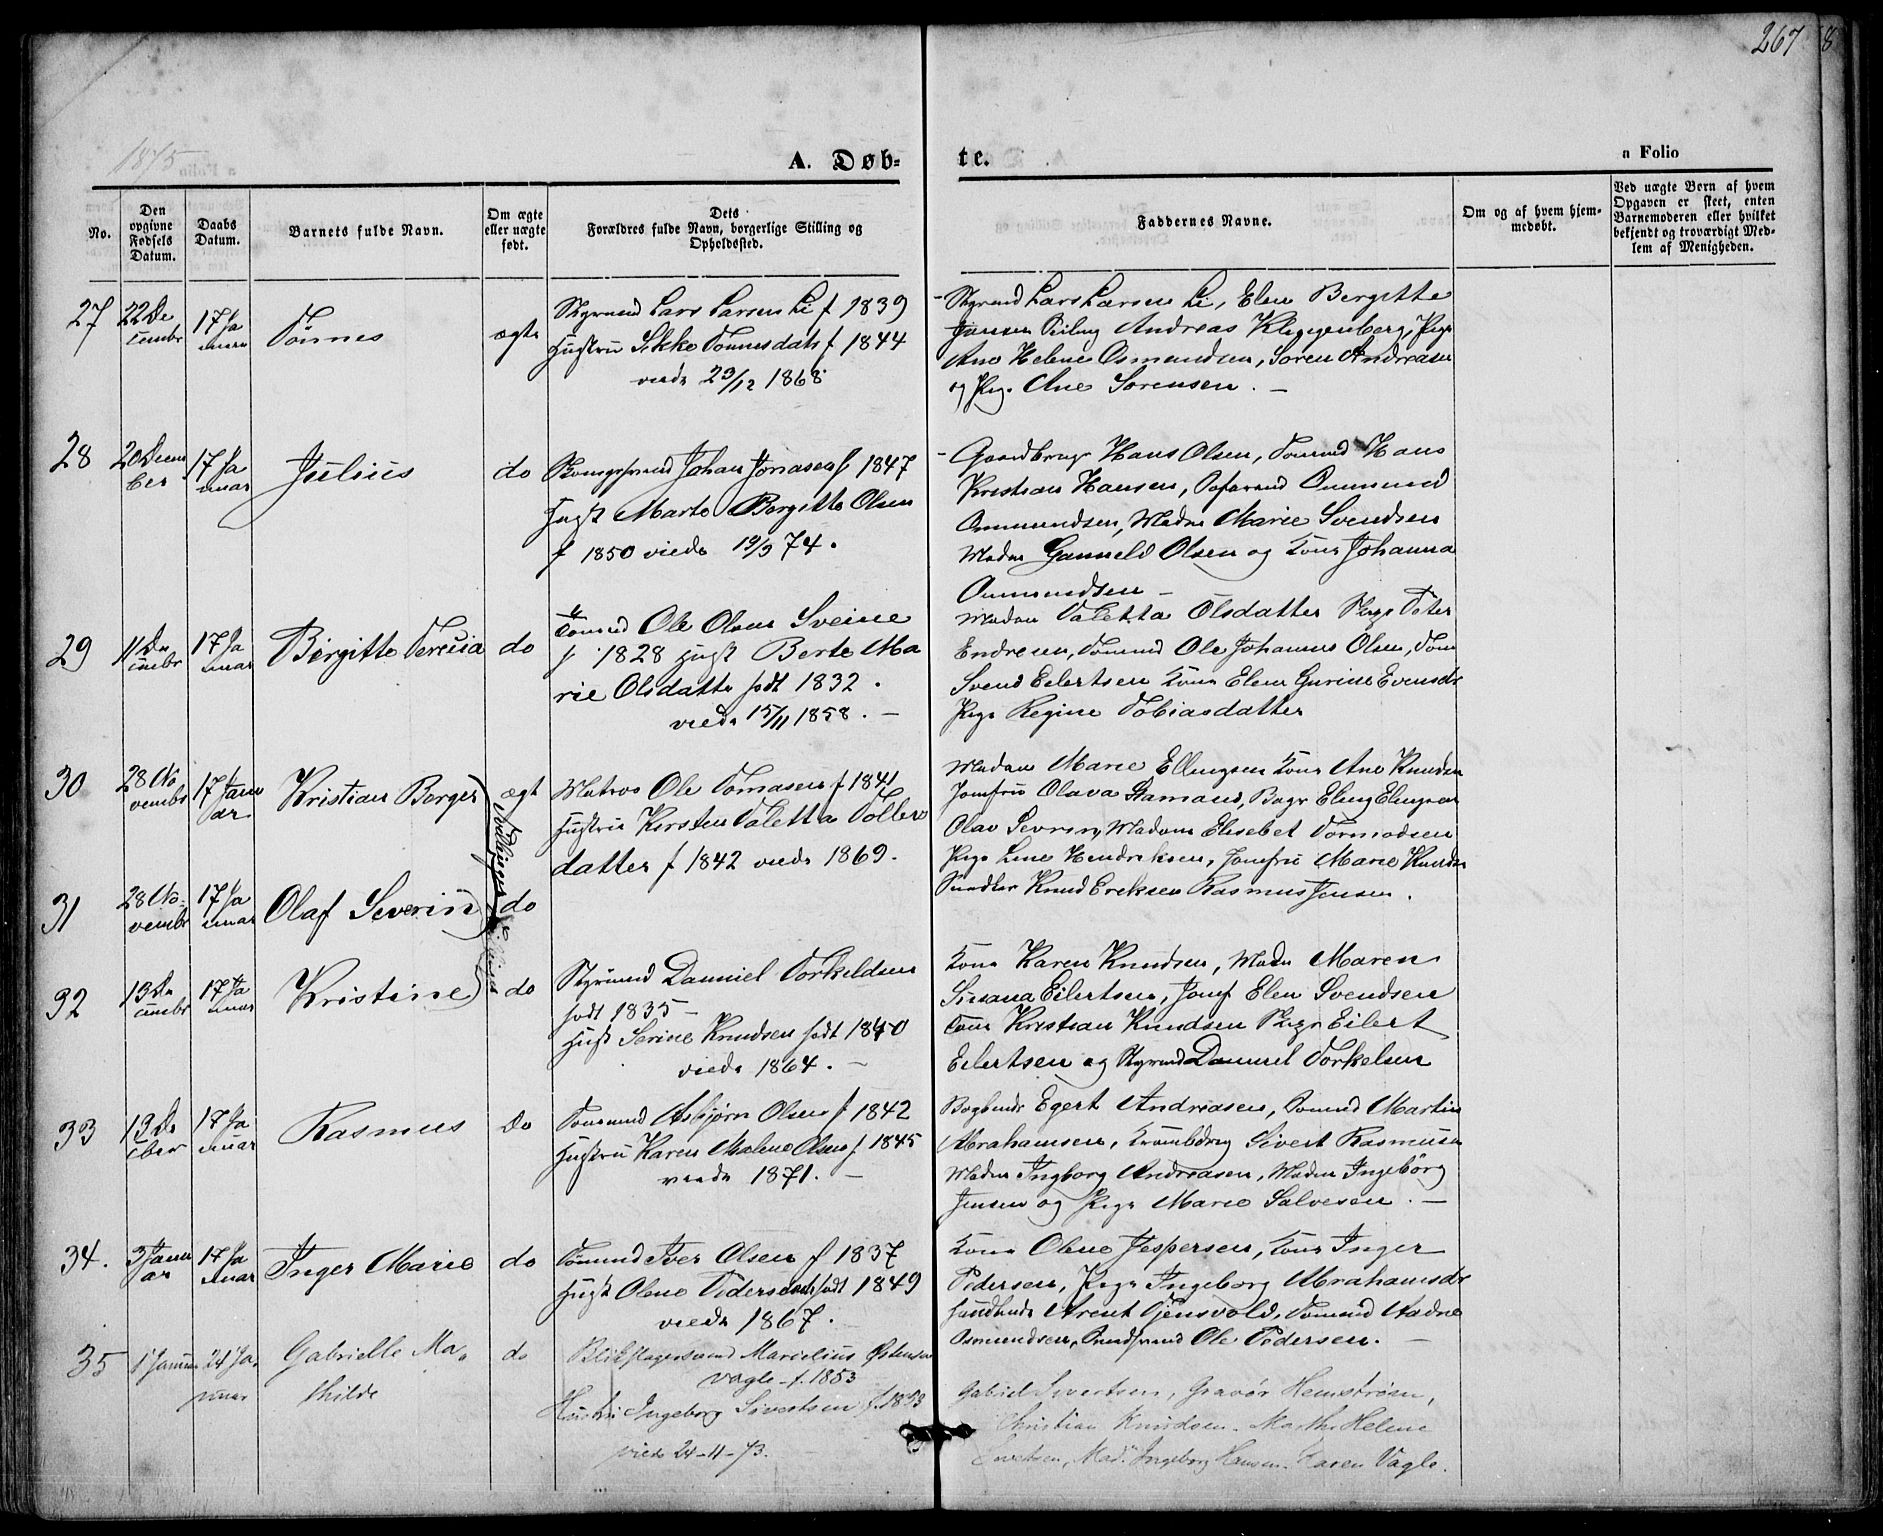 267
8
1875
A. Døb-
te.
a Folio
No.
Den opgivne Fødsels Datum.
Daabs Datum.
Barnets fulde Navn.
Om ægte eller uægte født.
Dets Forældres fulde Navn, borgerlige Stilling og Opholdssted.
Faddernes Navne.
Om og af hvem hjemmedøbt.
Ved uægte Børn af hvem Opgaven er skeet, enten Barnemoderen eller hvilket bekjendt og troværdigt Medlem af Menigheden.
27 22 De cembr 17 Ja nuar Tønnes ægte
Styrmand Lars Larsen Li f 1839
Hustru Sikke Tønnesdatr f 1844
viede 29/12 1868
Styrmd Lars Larsen Li, Elen Bergitte
Andreas Kluggenberg, Pige
Ane Helene Osmundsen, Søren Andreasen
og Pig. Ane Sørensen. —
28 20 Decem ber 17 Ja nuar Julius do
Johan Jonasen f 1847
Hust Marte Bergitte Olsen
f 1850 viede 19/9 74.
Gaardbrugr Hans Olsen, Tømmd Hans
Kristian Hansen, Søfarend Ommund
Ommundsen, Madm Marie Svendsen
Madm Gunneld Olsen og Kone Johanna
Ommundsen —
29 11 De cembr 17 Ja nuar Bergitte Teresia do
Tømmd Ole Olsen Sveine
f 1828 Hust Berte Ma
rie Olsdatter født 1832.
viede 15/11 1858. —
Madam Valetta Olsdatter Pige
Endresen, Tømmd Ole Johannes Olsen, Tøm
Svend Eilertsen Kone Elen Gurine Evensdr
Pige Regine Tobiasdatter
30 28 No vembr 17 Janu ar Kristian Berger ægt
Tvillinger
Matros Ole Tomasen f 1841
Hustru Kirsten Valetta Tollevs
datter f 1842 viede 1869.
Madam Marie Ellingsen Kone Ane Knudsen
Jomfru Olava Stamand, Bagr Eling Elingsen
Olav Severin, Madam Elisebet Tormodsen
Pige Lene Hendriksen, Jomfru Marie Knudsen
Snedker Knud Ereksen Rasmus Jensen.
31 28 No- vembr 17 Ja nuar Olaf Severin do
32 13 De cembr 17 Ja nuar Kristine do
Styrmand Daniel Torkeldsen
født 1835 —
Hust Serine Knudsen født 1840
viede 1864. —
Kone Karen Knudsen, Mada Maren
Susana Eilertsen, Jomf Elen Svendsen
Tøm Kristian Knudsen Pige Eilert
Eilertsen og Styrmd Daniel Torkelsen
33 13 De cber 17 Ja nuar Rasmus do
Tømmand Asbjørn Olsen f 1842
Hustru Karen Malene Olsen f 1845
viede 1871. —
Bogbinder Egert Andreasen, Tømmd Martin
Abrahamsen, Sivert Rasmussen
Madm Ingborg Andreasen, Madm Ingebørg
Jensen og Pige Marie Salvesen. —
34. 3 Janu ar 17 Ja nuar Inger Marie do
Tømmand Iver Olsen f 1837
Hust Olene Pedersdatr født 1849
viede 1867.
Kone Olene Jespersen, Kone Inger
Pedersen, Pige Ingeborg Abrahamsdr
Arent Tjensvold, Tømmd Aadne
Osmundsen, Ole Pedersen. —
35 1 Januar 24 Ja- nuar Gabrielle Ma- thilde do
Blikslagersvend Marcelius Østensen
Vagle - f. 1853
Hustru Ingeborg Sivertsen f. 1853
viede 24-11-73.
Gabriel Sivertsen, Gravør Hemstrøsen,
Christian Knudsen. Marthe Helene
Sivertsen, Mad. Ingeborg Hansen. Karen Vagle.